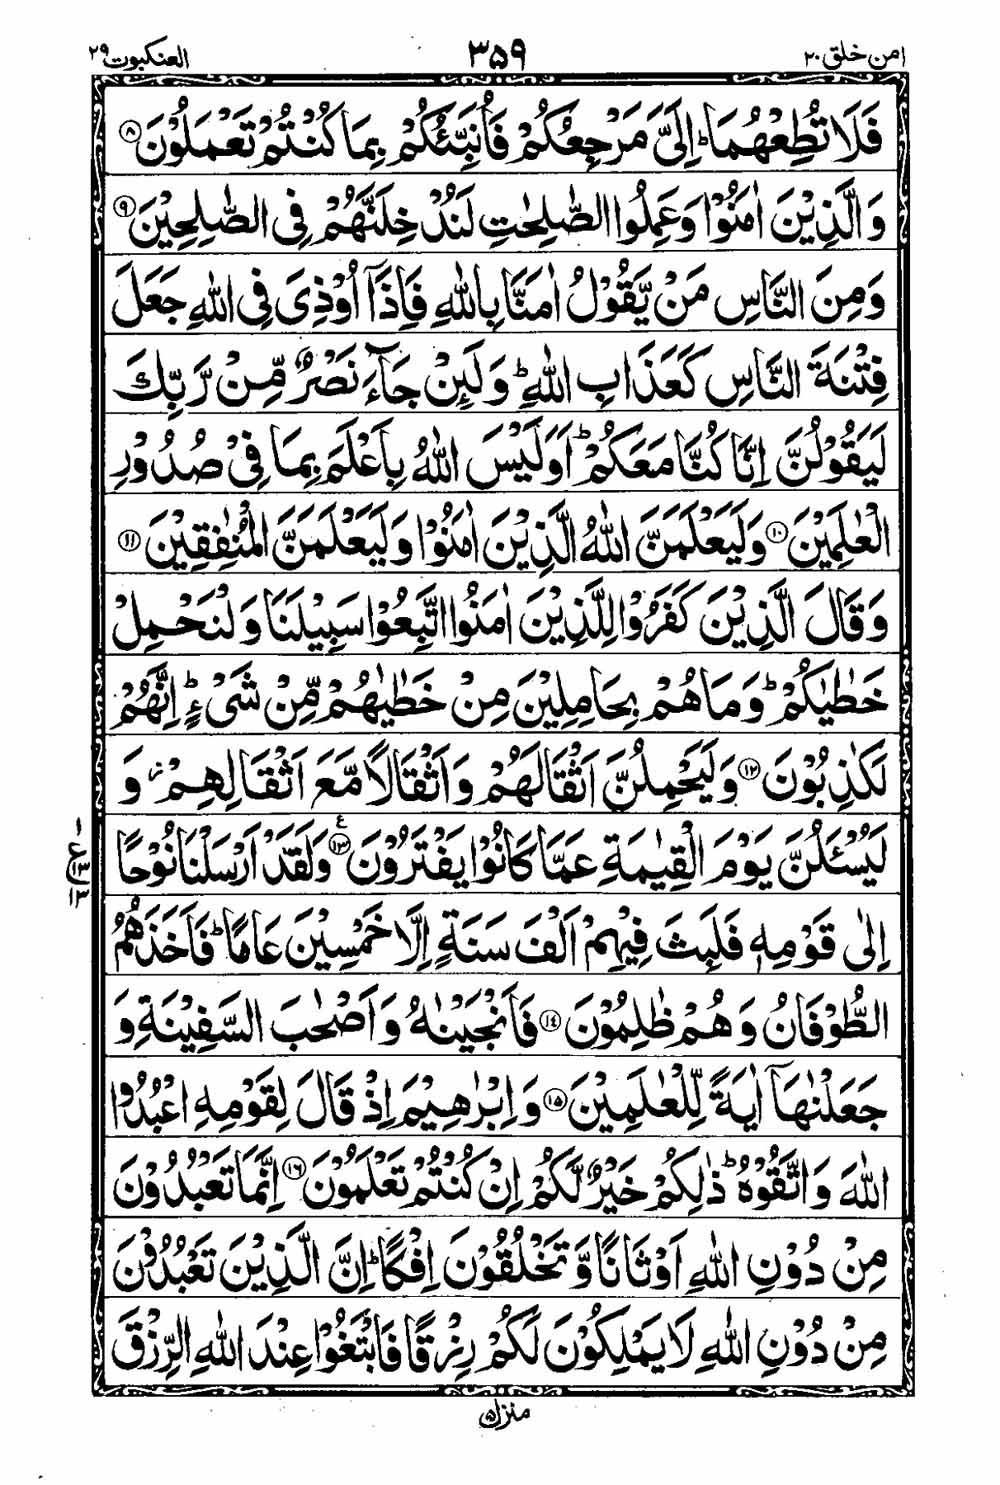 امن خلق ٢٠ ٣۵٩ العنكبوت ٢٩
فَلَا تُطِعْهُمَا ؕ اِلَیَّ مَرْجِعُكُمْ فَاُنَبِّئُكُمْ بِمَا كُنْتُمْ تَعْمَلُوْنَ ۝٨
وَالَّذِیْنَ اٰمَنُوْا وَعَمِلُوا الصّٰلِحٰتِ لَنُدْخِلَنَّهُمْ فِی الصّٰلِحِیْنَ ۝٩
وَمِنَ النَّاسِ مَنْ یَّقُوْلُ اٰمَنَّا بِاللّٰهِ فَاِذَاۤ اُوْذِیَ فِی اللّٰهِ جَعَلَ
فِتْنَةَ النَّاسِ كَعَذَابِ اللّٰهِ ؕ وَلَىِٕنْ جَآءَ نَصْرٌ مِّنْ رَّبِّكَ
لَیَقُوْلُنَّ اِنَّا كُنَّا مَعَكُمْ ؕ اَوَلَیْسَ اللّٰهُ بِاَعْلَمَ بِمَا فِیْ صُدُوْرِ
الْعٰلَمِیْنَ ۝١٠ وَلَیَعْلَمَنَّ اللّٰهُ الَّذِیْنَ اٰمَنُوْا وَلَیَعْلَمَنَّ الْمُنٰفِقِیْنَ ۝١١
وَقَالَ الَّذِیْنَ كَفَرُوْا لِلَّذِیْنَ اٰمَنُوا اتَّبِعُوْا سَبِیْلَنَا وَلْنَحْمِلْ
خَطٰیٰكُمْ ؕ وَمَا هُمْ بِحَامِلِیْنَ مِنْ خَطٰیٰهُمْ مِّنْ شَیْءٍ ؕ اِنَّهُمْ
لَكٰذِبُوْنَ ۝١٢ وَلَیَحْمِلُنَّ اَثْقَالَهُمْ وَاَثْقَالًا مَّعَ اَثْقَالِهِمْ ؗ وَ
لَیُسْـَٔلُنَّ یَوْمَ الْقِیٰمَةِ عَمَّا كَانُوْا یَفْتَرُوْنَ ۝١٣ ع وَلَقَدْ اَرْسَلْنَا نُوْحًا
١ ع ١٣ ١٣
اِلٰی قَوْمِهٖ فَلَبِثَ فِیْهِمْ اَلْفَ سَنَةٍ اِلَّا خَمْسِیْنَ عَامًا ؕ فَاَخَذَهُمُ
الطُّوْفَانُ وَهُمْ ظٰلِمُوْنَ ۝١٤ فَاَنْجَیْنٰهُ وَاَصْحٰبَ السَّفِیْنَةِ وَ
جَعَلْنٰهَاۤ اٰیَةً لِّلْعٰلَمِیْنَ ۝١٥ وَاِبْرٰهِیْمَ اِذْ قَالَ لِقَوْمِهِ اعْبُدُوا
اللّٰهَ وَاتَّقُوْهُ ؕ ذٰلِكُمْ خَیْرٌ لَّكُمْ اِنْ كُنْتُمْ تَعْلَمُوْنَ ۝١٦ اِنَّمَا تَعْبُدُوْنَ
مِنْ دُوْنِ اللّٰهِ اَوْثَانًا وَّتَخْلُقُوْنَ اِفْكًا ؕ اِنَّ الَّذِیْنَ تَعْبُدُوْنَ
مِنْ دُوْنِ اللّٰهِ لَا یَمْلِكُوْنَ لَكُمْ رِزْقًا فَابْتَغُوْا عِنْدَ اللّٰهِ الرِّزْقَ
منزل ۵